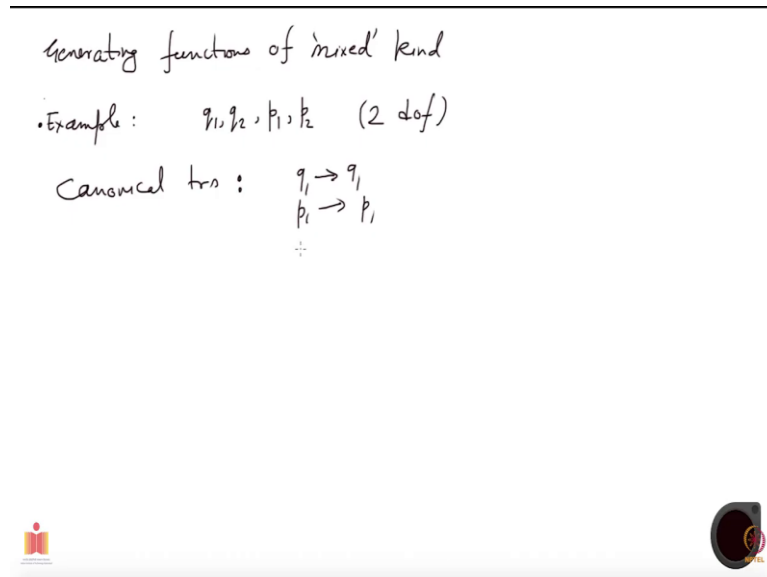 Generating functions of 'mixed' kind
• Example : q₁, q₂, p₁, p₂ (2 dof)
Canonical trs : q₁ → q₁
p₁ → p₁
NPTEL